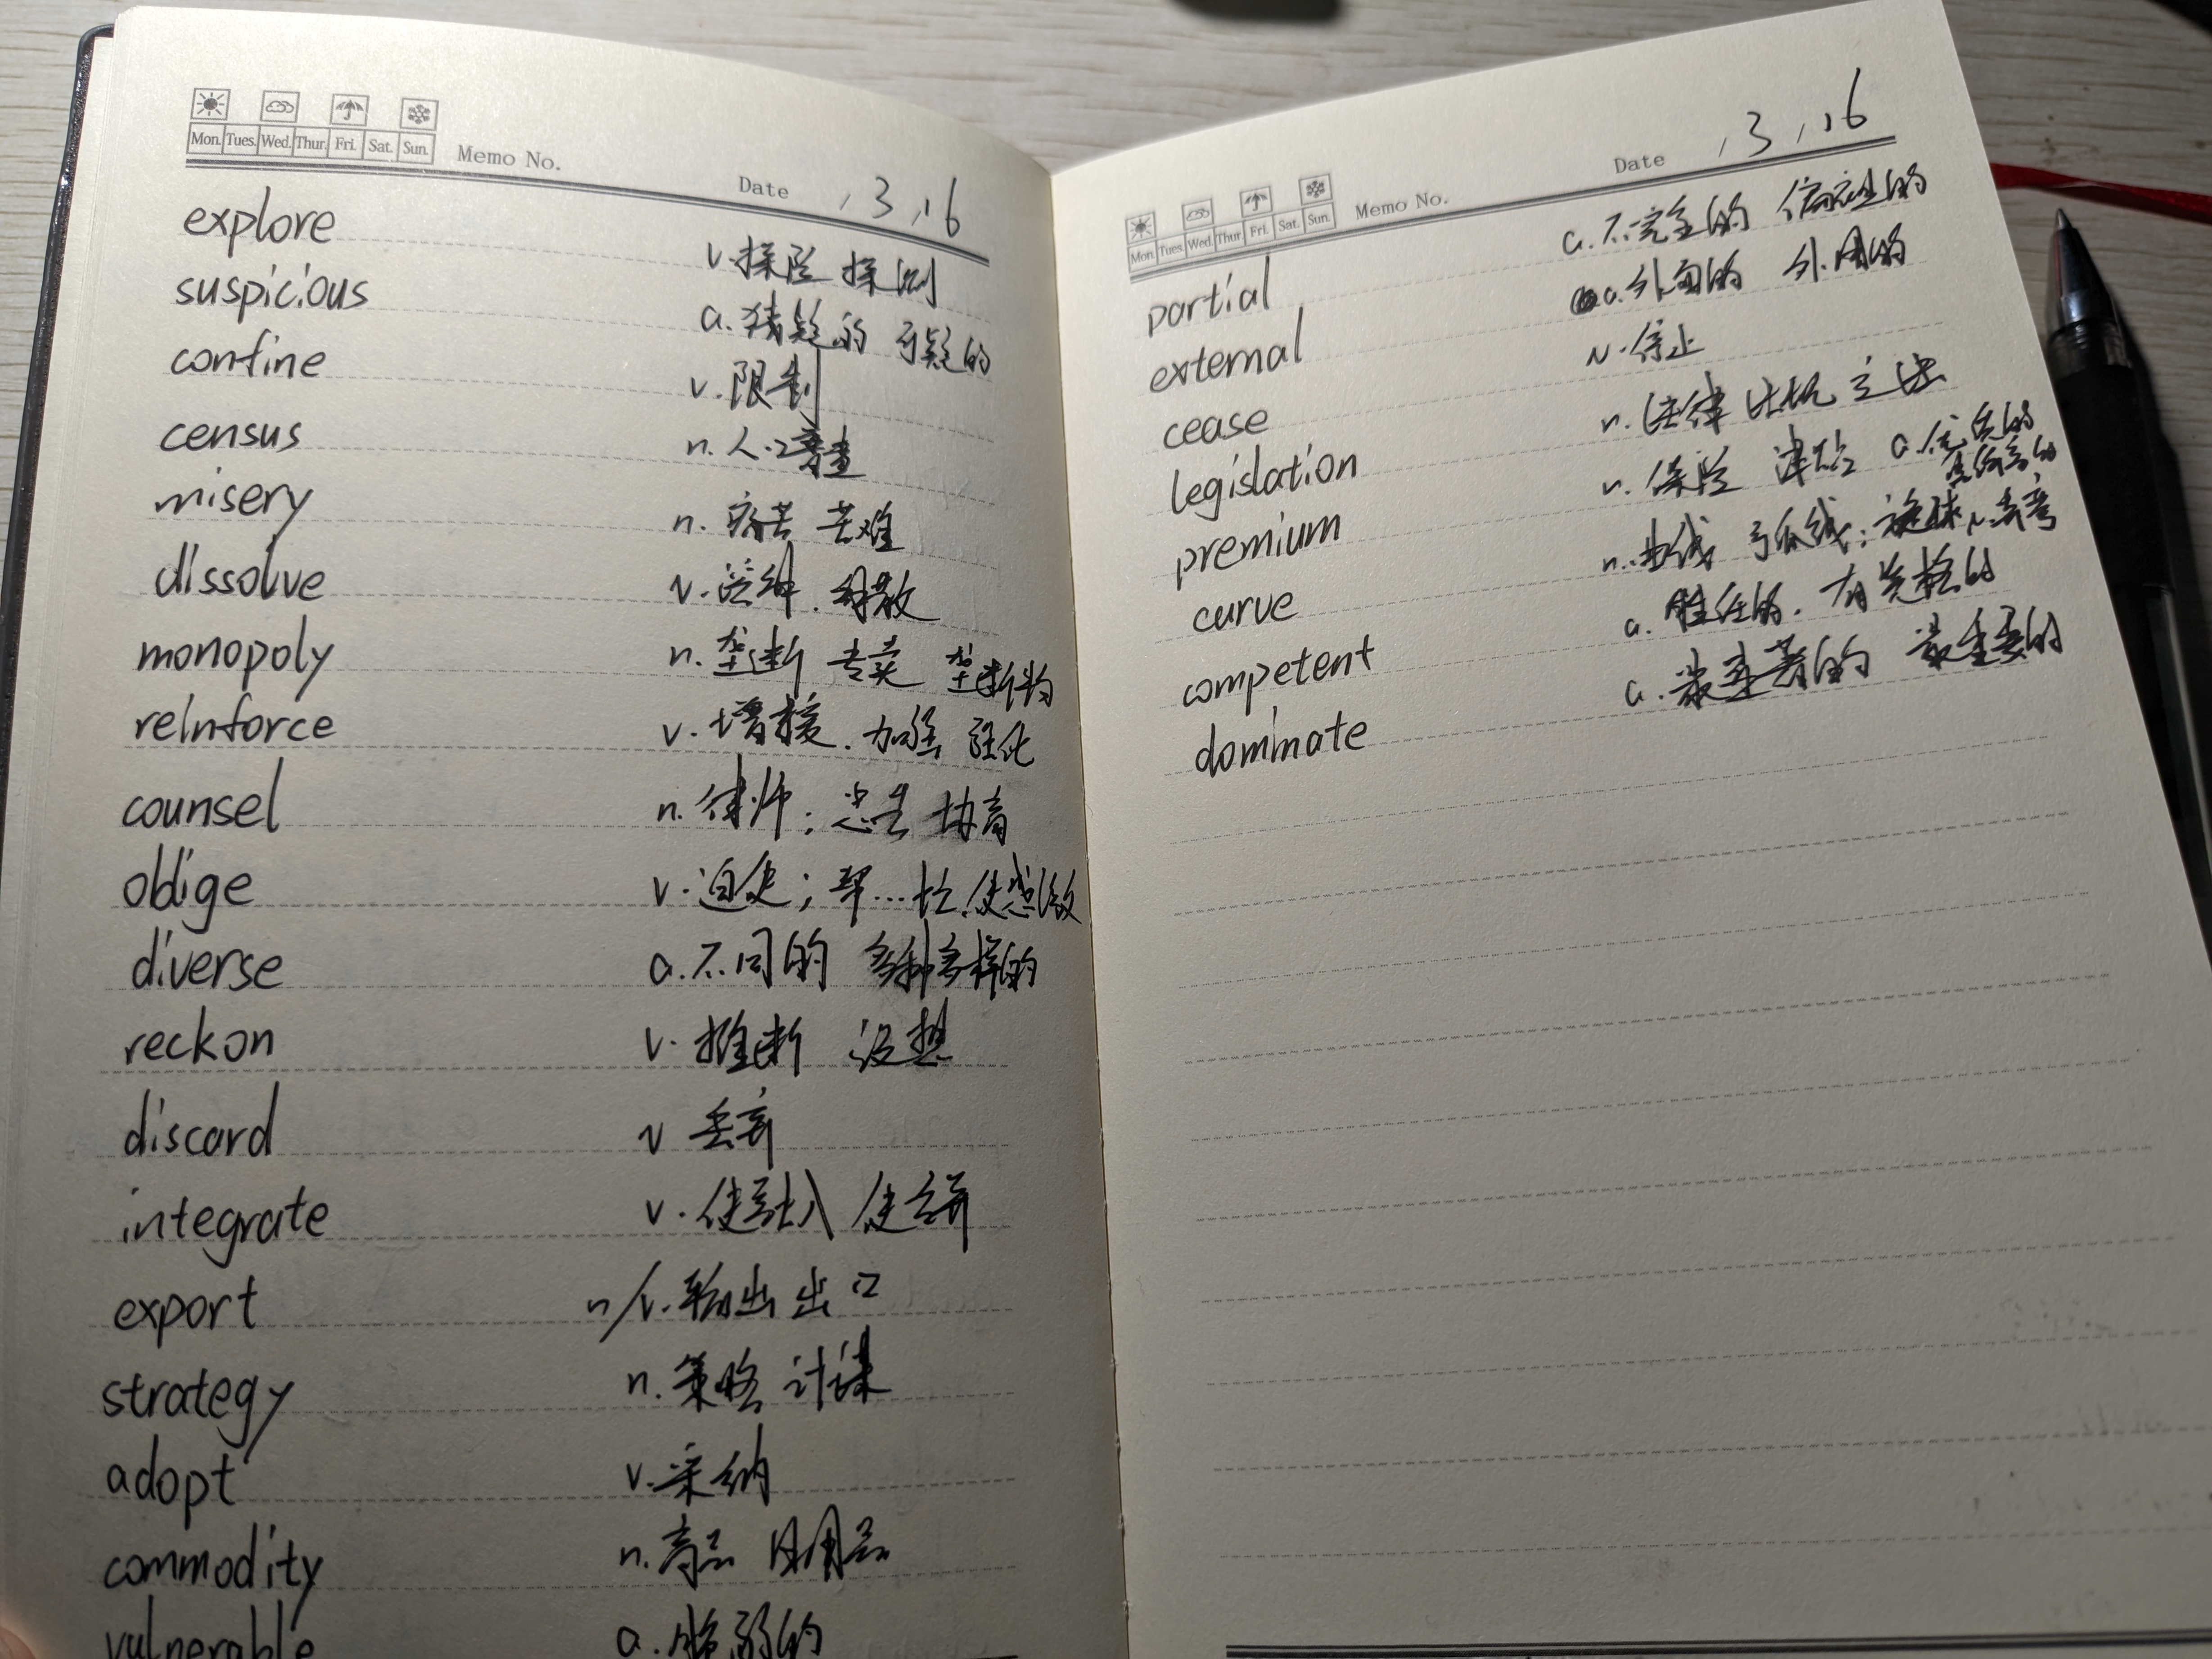 Mon. Tues. Wed. Thur. Fri. Sat. Sun. Memo No. Date , 3 , 16
explore v.探险 探测
suspicious a.猜疑的 可疑的
confine v.限制
census n.人口普查
misery n.痛苦 苦难
dissolve v.溶解.解散
monopoly n.垄断 专卖 垄断物
reinforce v.增援.加强 强化
counsel n.律师;忠告 协商
oblige v.迫使;帮...忙.使感激
diverse a.不同的 多种多样的
reckon v.推断 设想
discard v 丢弃
integrate v.使融入 使合并
export n/v.输出 出口
strategy n.策略 计谋
adopt v.采纳
commodity n.商品 日用品
vulnerable a.脆弱的
Mon. Tues. Wed. Thur. Fri. Sat. Sun. Memo No. Date , 3 , 16
partial a.不完全的 偏心的
external a.外面的 外用的
cease v.停止
legislation n.法律 立法
premium n.保险 津贴 a.优质的
curve n.曲线 弧线;旋球 v.弄弯
competent a.胜任的.有资格的
dominate a.最显著的 最重要的